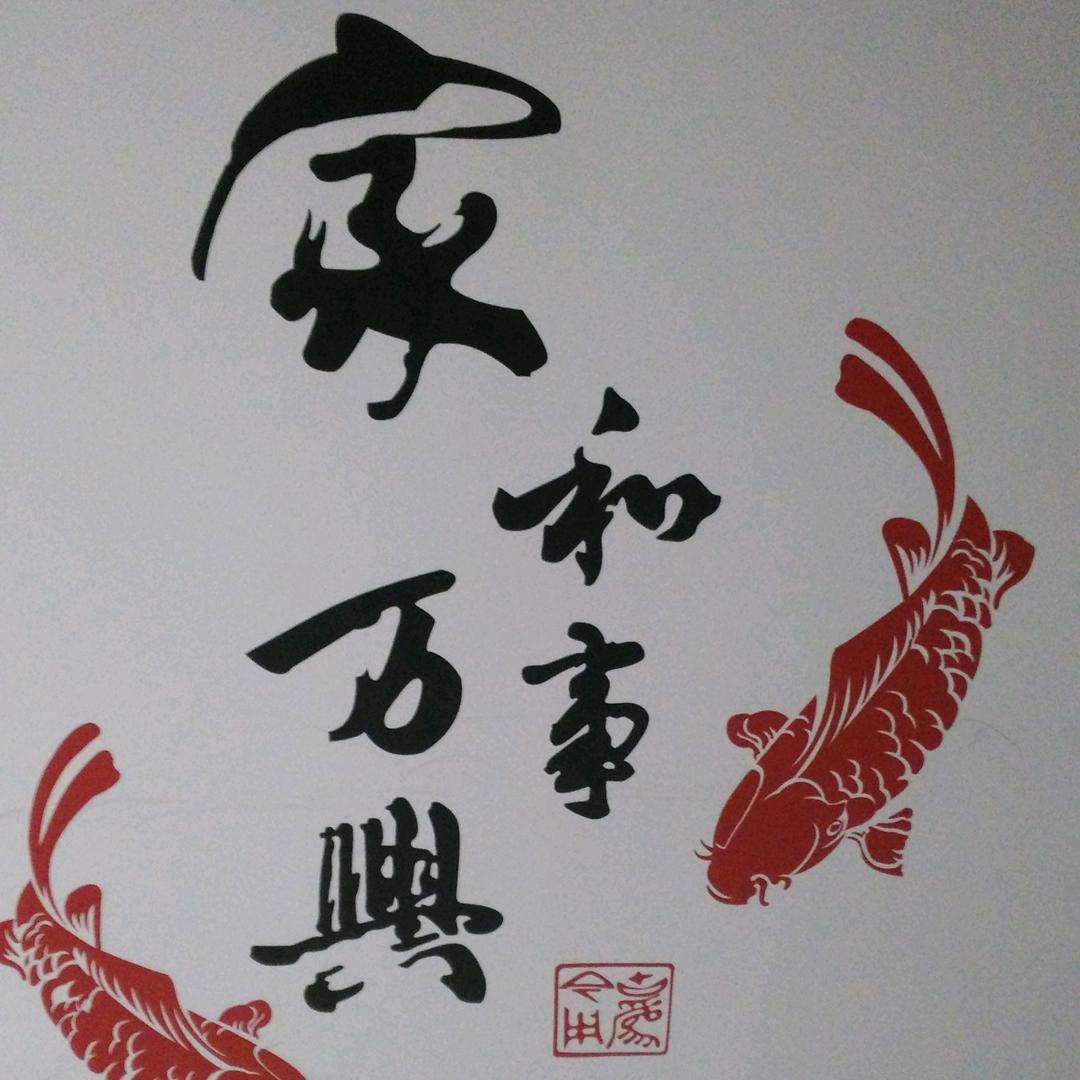 家
和事
万興